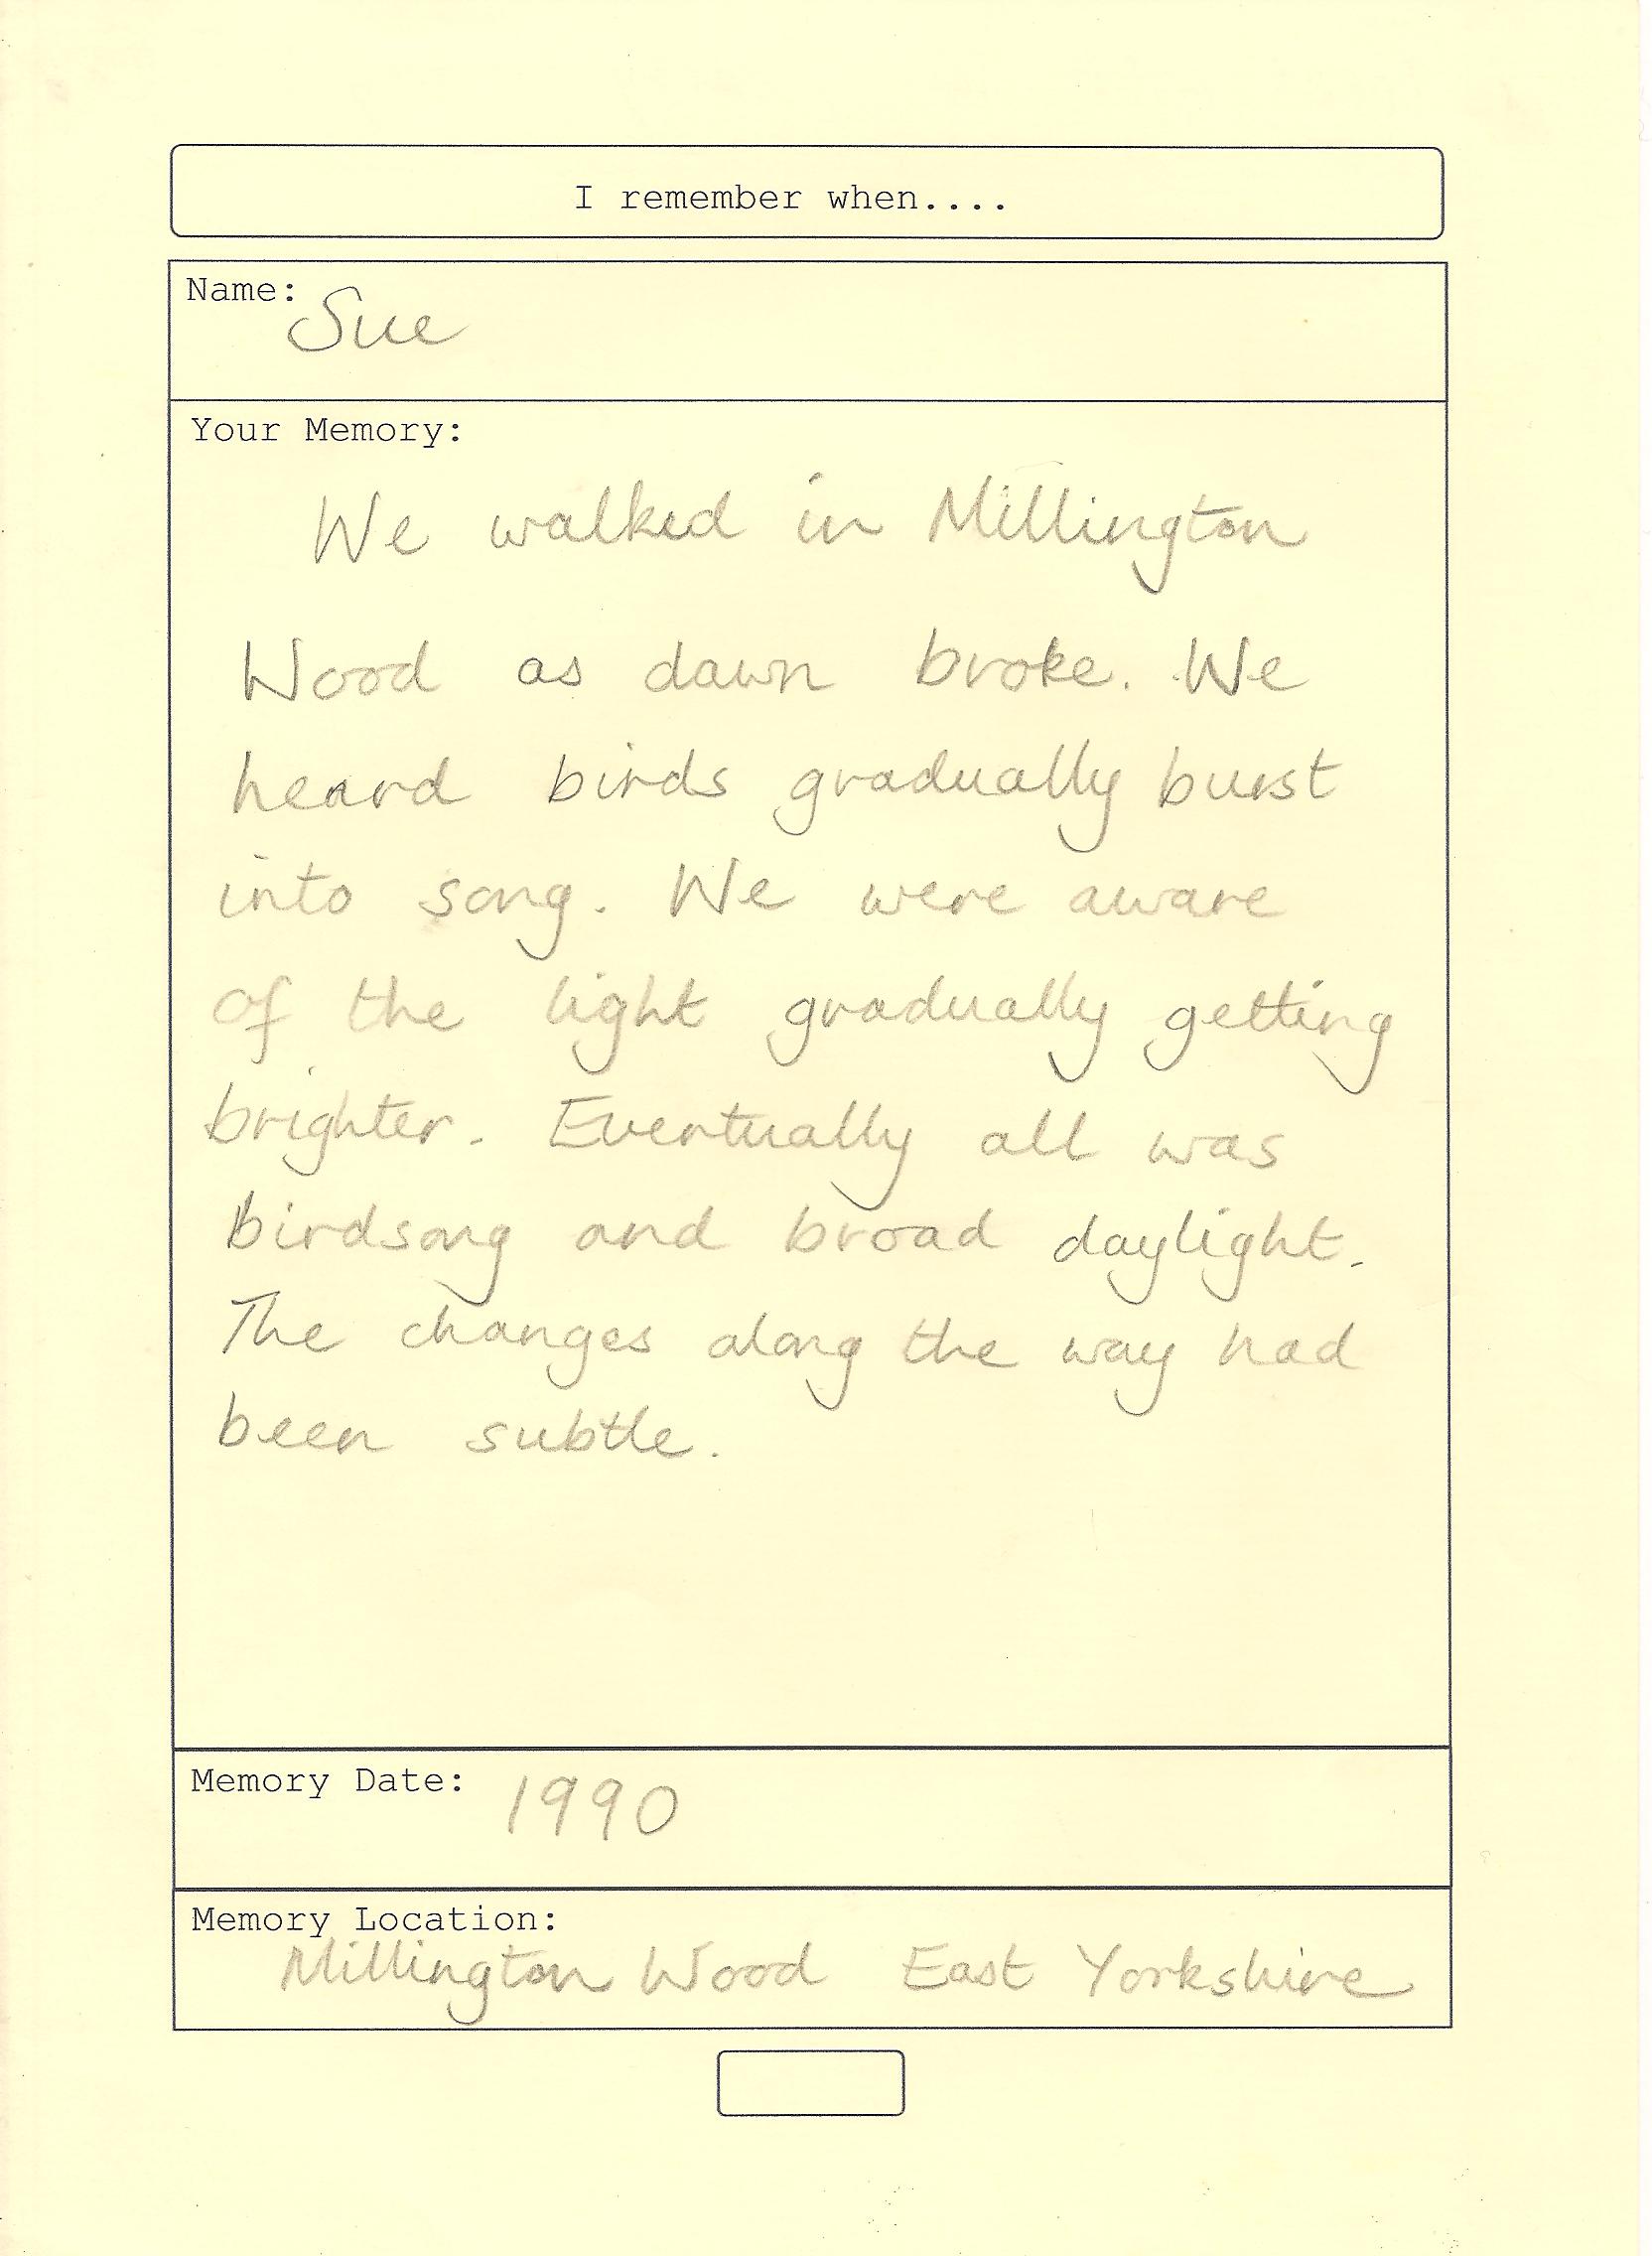 I remember when....
Name:
Sue
Your Memory:
We walked in Millington
Wood as dawn broke. We
heard birds gradually burst
into song. We were aware
of the light gradually getting
brighter. Eventually all was
birdsong and broad daylight.
The changes along the way had
been subtle.
Memory Date: 1990
Memory Location:
Millington Wood East Yorkshire